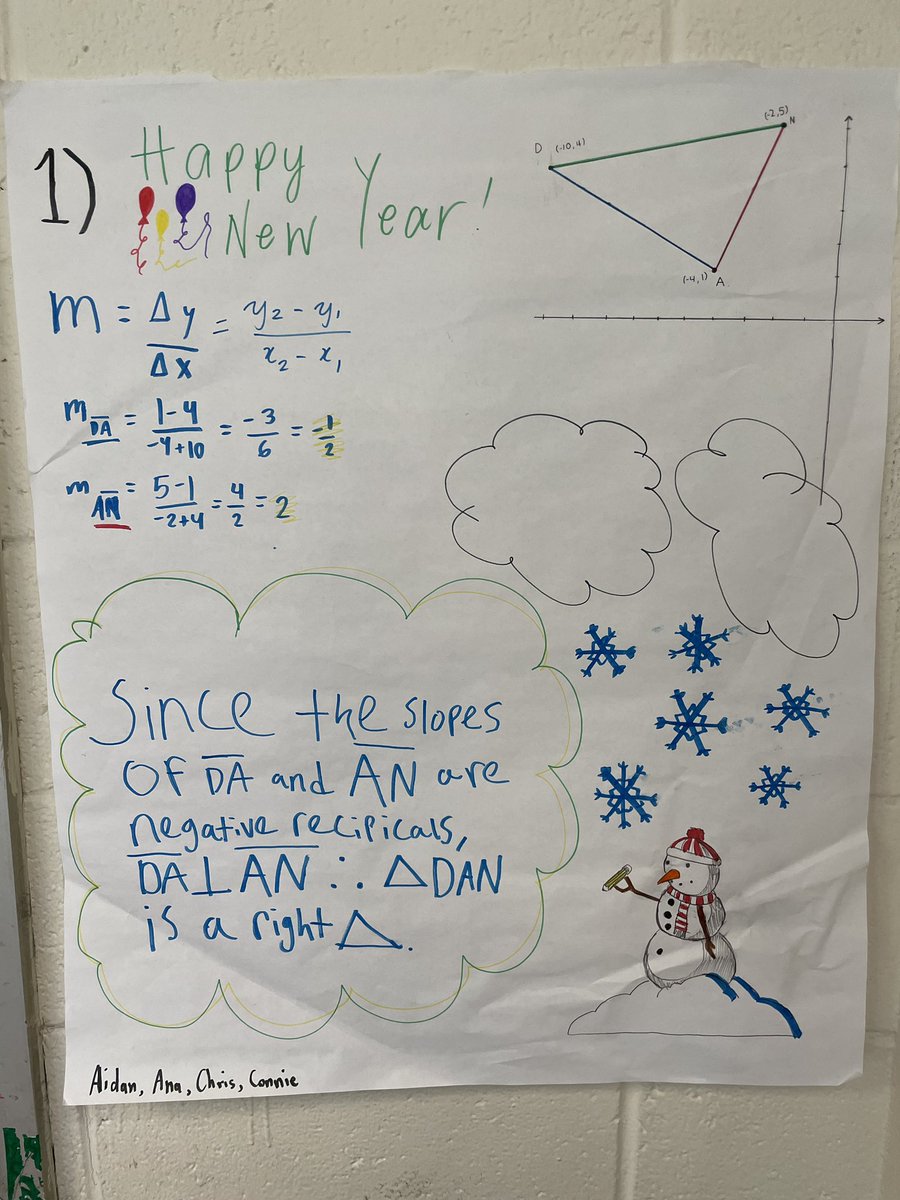 1) Happy
New Year!
D (-10,4)
(-2,5) N
(-4,1) A
m = Δy/Δx = y₂ - y₁/x₂ - x₁
m DA = 1-4/-4+10 = -3/6 = -1/2
m AN = 5-1/-2+4 = 4/2 = 2
Since the slopes
OF DA and AN are
negative recipicals,
DA⊥AN ∴ △DAN
is a right △.
Aidan, Ana, Chris, Connie